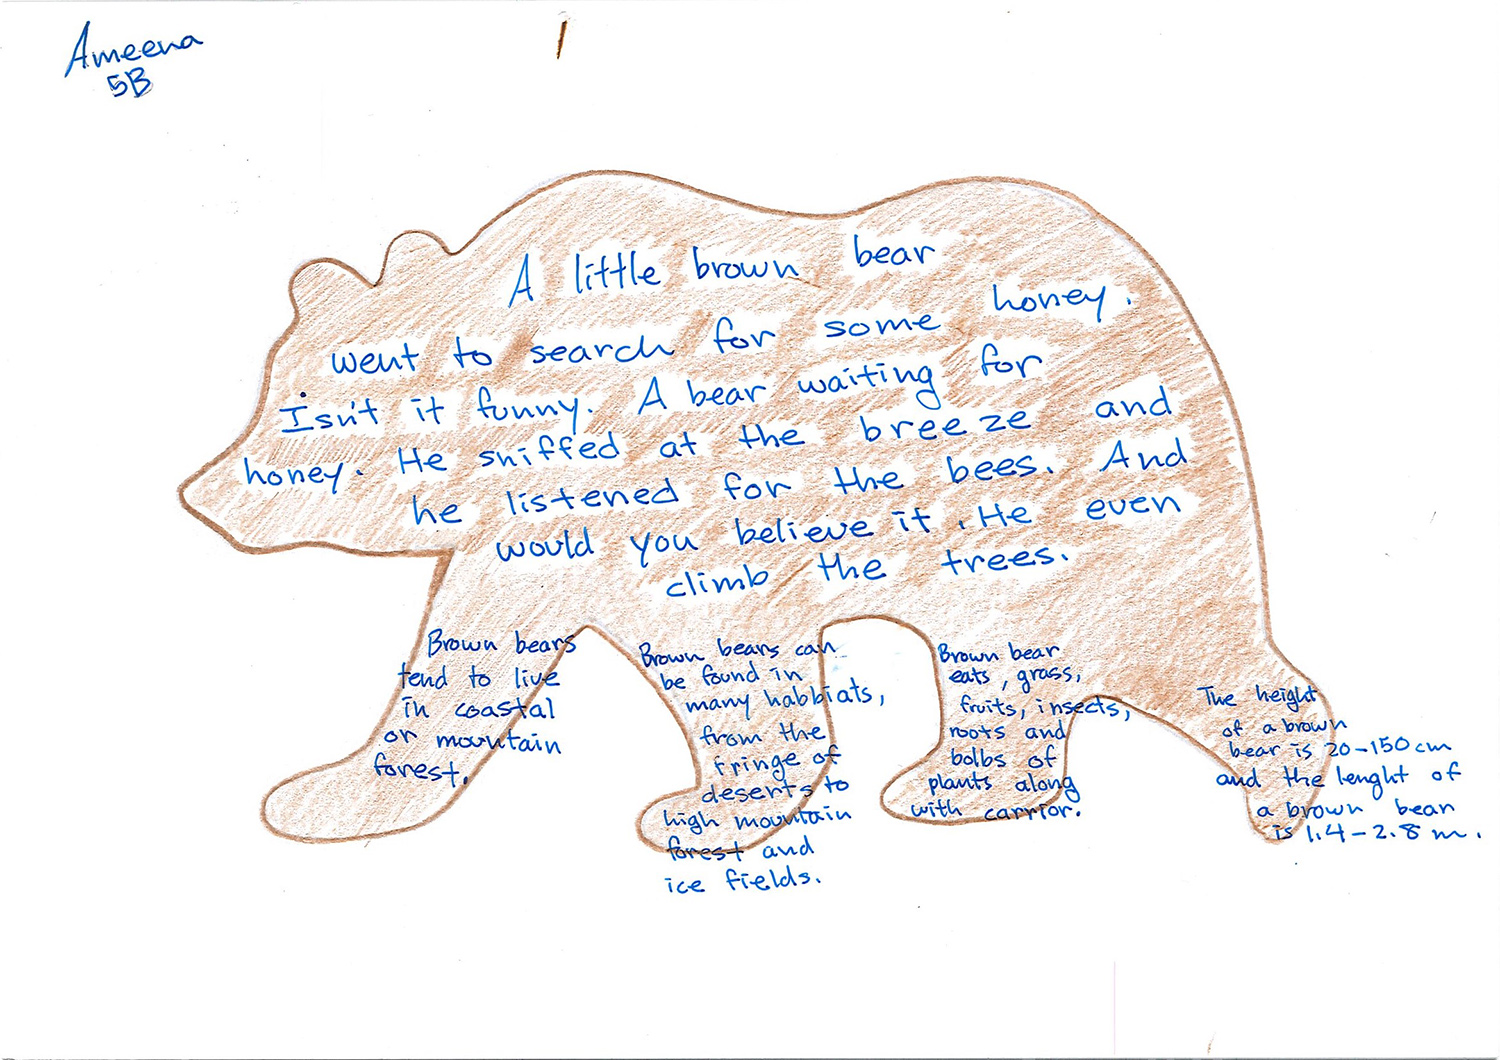 Ameena
5B
A little brown bear
went to search for some honey.
Isn't it funny. A bear waiting for
honey. He sniffed at the breeze and
he listened for the bees. And
would you believe it. He even
climb the trees.
Brown bears
tend to live
in coastal
or mountain
forest.
Brown bears can
be found in
many habbiats,
from the
fringe of
deserts to
high mountain
forest and
ice fields.
Brown bear
eats, grass,
fruits, insects,
roots and
bolbs of
plants along
with carrior.
The height
of a brown
bear is 20-150cm
and the lenght of
a brown bear
is 1.4-2.8m.